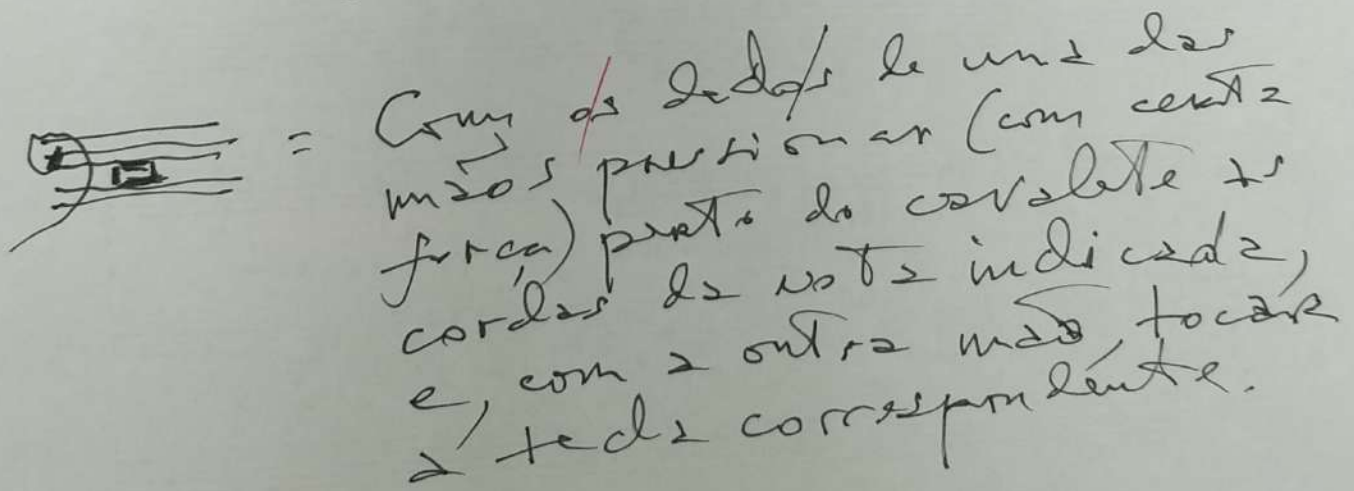 = Com os dedos de uma das
mãos pressionar (com certa
força) perto do cavalete as
cordas da nota indicada,
e, com a outra mão, tocar
a tecla correspondente.